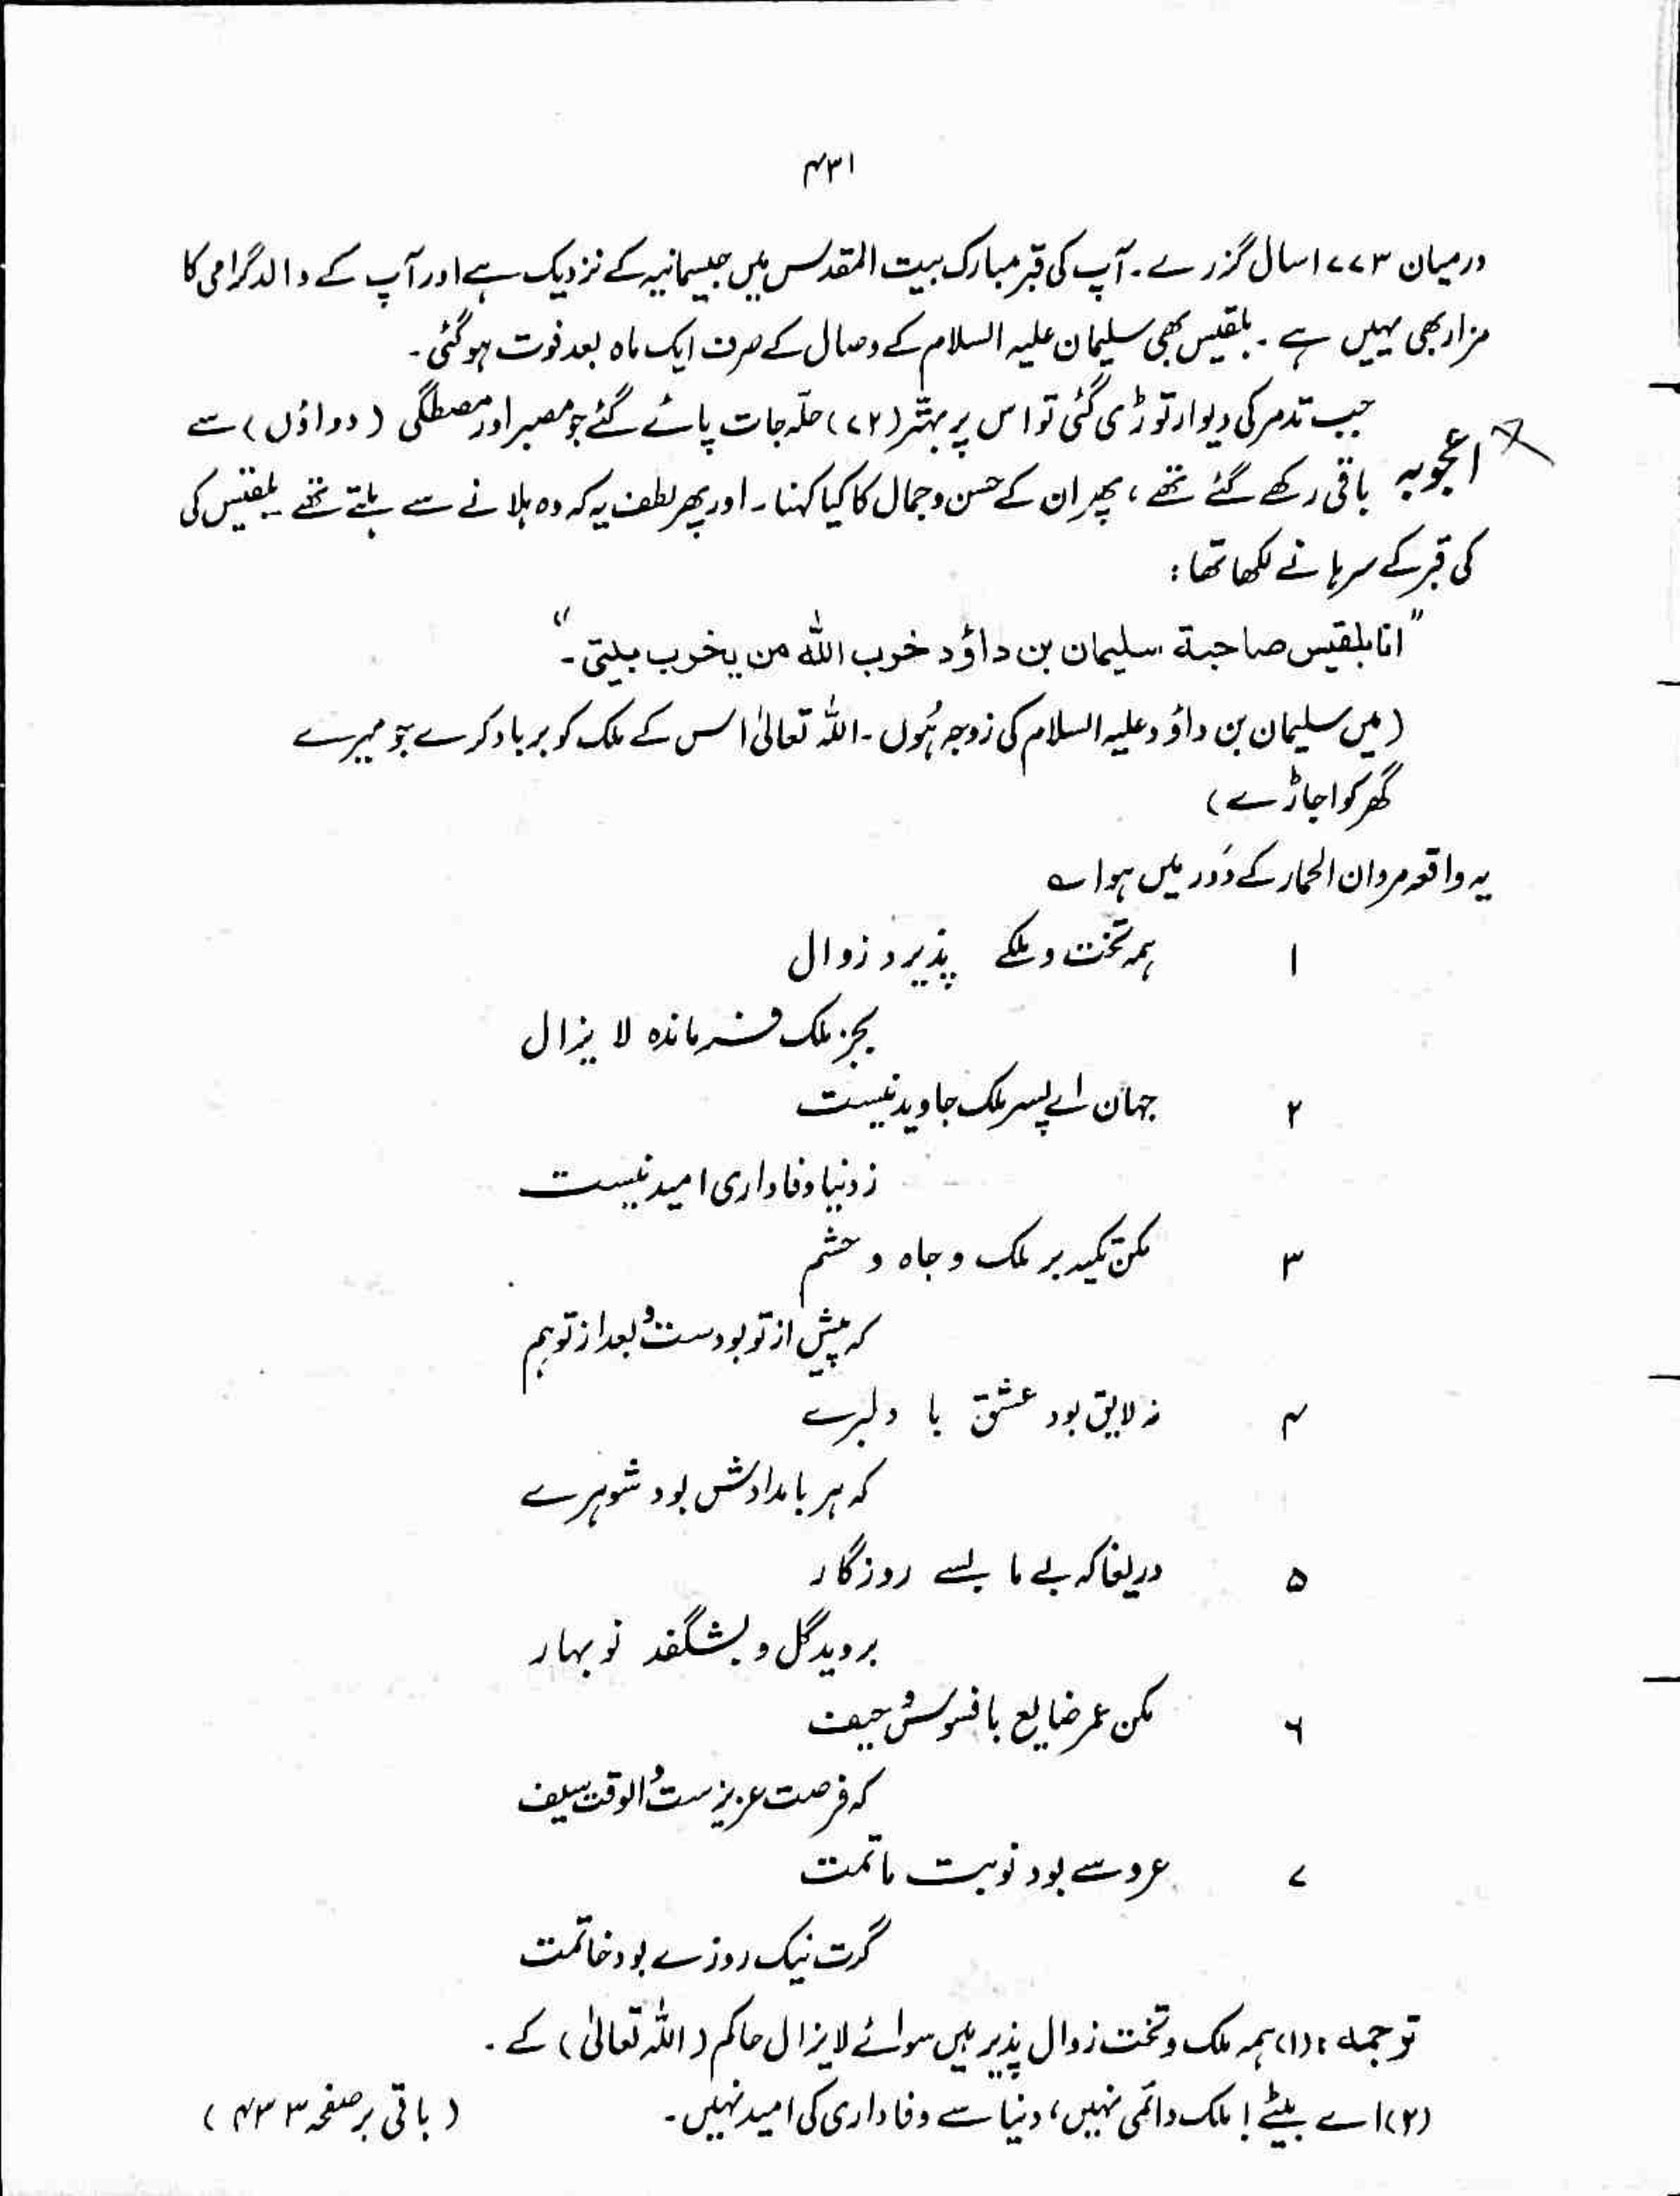 ۴۳۱
درمیان ۱۷۷۳ سال گزرے۔ آپ کی قبر مبارک بیت المقدس میں جیسمانیہ کے نزدیک ہے اور آپ کے والد گرامی کا
مزار بھی یہیں ہے۔ بلقیس بھی سلیمان علیہ السلام کے وصال کے صرف ایک ماہ بعد فوت ہو گئی۔
جب تدمر کی دیوار توڑی گئی تو اس پر بہتّر (۷۲) حلّہ جات پائے گئے جو مصبر اور مصطگی (دواؤں) سے
اعجوبہ باقی رکھے گئے تھے، پھر ان کے حسن و جمال کا کیا کہنا۔ اور پھر لطف یہ کہ وہ ہلانے سے ہلتے تھے۔ بلقیس کی
کی قبر کے سرہانے لکھا تھا:
"انا بلقیس صاحبة سلیمان بن داؤد خرب الله من یخرب بیتی۔"
(میں سلیمان بن داؤد علیہ السلام کی زوجہ ہُوں۔ اللہ تعالیٰ اس کے ملک کو برباد کرے جو میرے
گھر کو اجاڑے)
یہ واقعہ مروان الحمار کے دَور میں ہوا ؎
۱ ہمہ تخت و ملکے پذیرد زوال
بجز ملک فرماندہ لا یزال
۲ جہان اے پسر ملک جاوید نیست
ز دنیا وفاداری امید نیست
۳ مکن تکیہ بر ملک و جاہ و حشم
کہ پیش از تو بودست و بعد از تو ہم
۴ نہ لایق بود عشق با دلبرے
کہ ہر بامدادش بود شوہرے
۵ دریغا کہ بے ما بسے روزگار
بروید گل و بشگفد نوبہار
۶ مکن عمر ضایع بافسوس و حیف
کہ فرصت عزیزست و الوقت سیف
۷ عروسے بود نوبت ماتمت
گرت نیک روزے بود خاتمت
ترجمہ: (۱) ہمہ ملک و تخت زوال پذیر ہیں سوائے لا یزال حاکم (اللہ تعالیٰ) کے۔
(۲) اے بیٹے! ملک دائمی نہیں، دنیا سے وفاداری کی امید نہیں۔ (باقی بر صفحہ ۴۳۳)